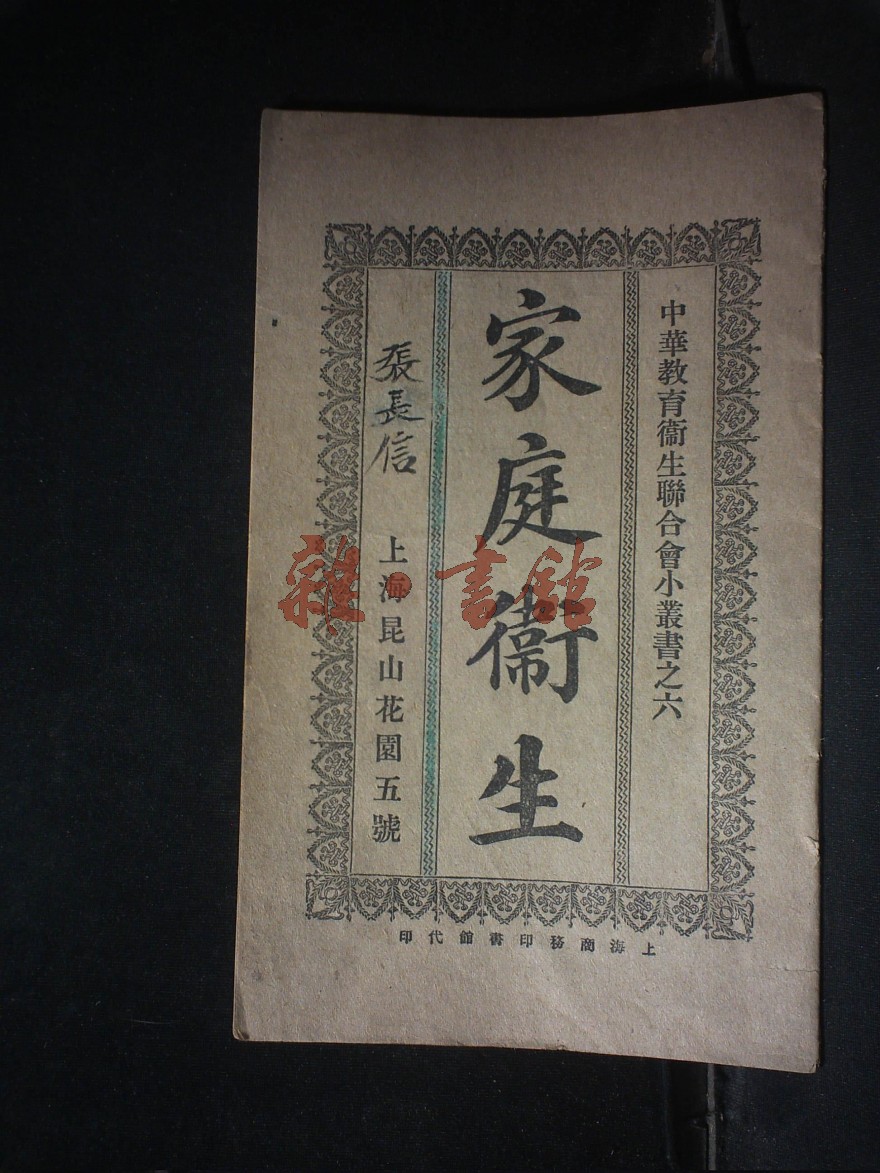 中華教育衞生聯合會小叢書之六
家庭衞生
張長信
上海昆山花園五號
上海商務印書館代印
雜·書館